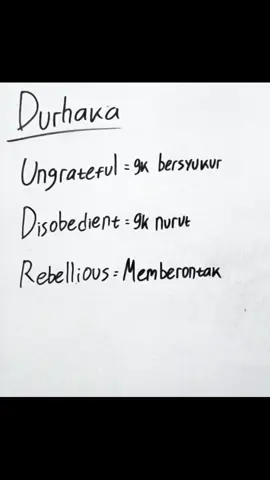 Durhaka
Ungrateful = gk bersyukur
Disobedient = gk nurut
Rebellious = Memberontak